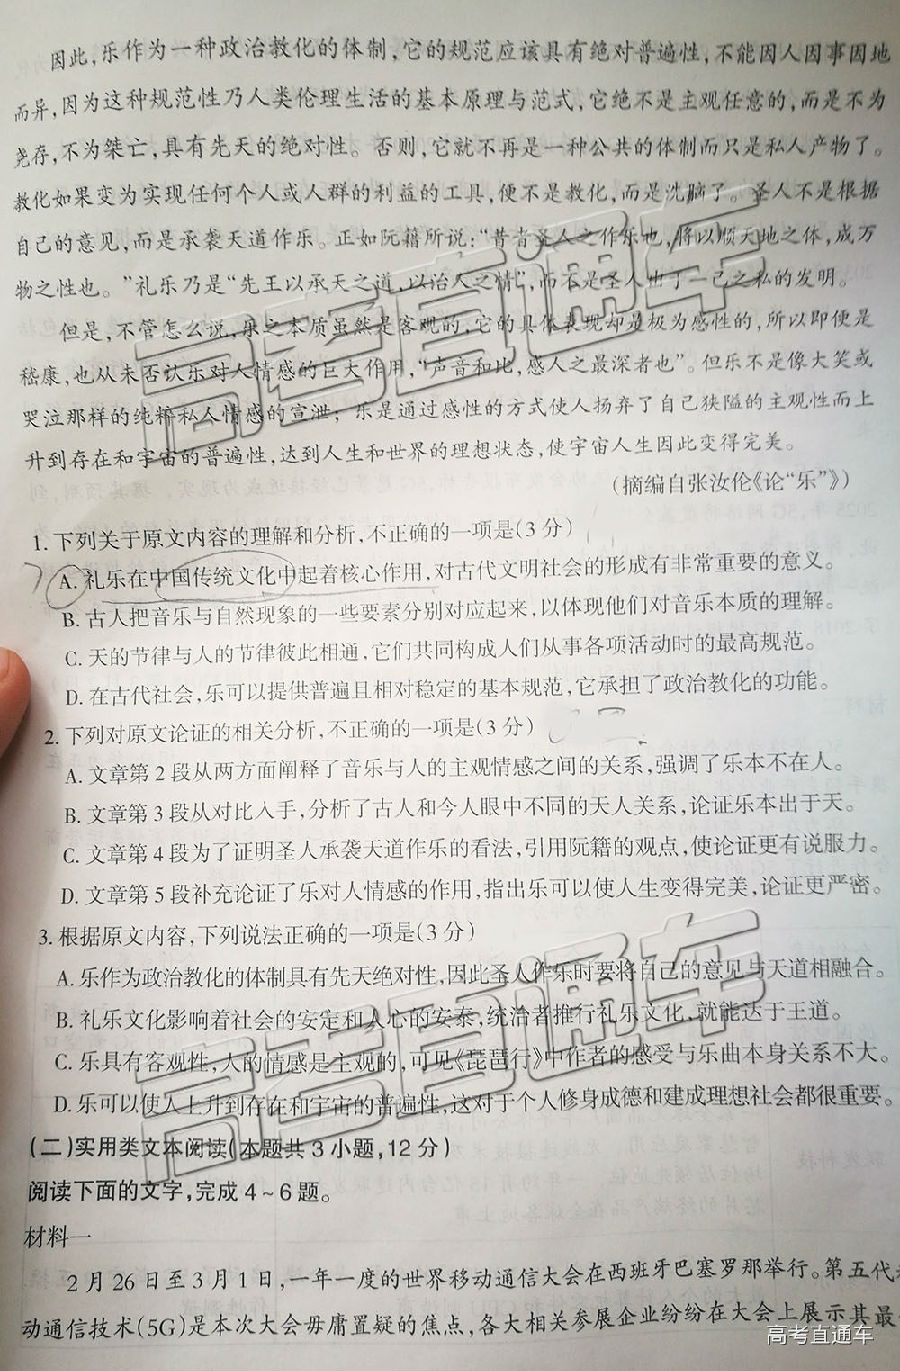 因此,乐作为一种政治教化的体制,它的规范应该具有绝对普遍性,不能因人因事因地
而异,因为这种规范性乃人类伦理生活的基本原理与范式,它绝不是主观任意的,而是不为
尧存,不为桀亡,具有先天的绝对性。否则,它就不再是一种公共的体制而只是私人产物了。
教化如果变为实现任何个人或人群的利益的工具,便不是教化,而是洗脑了。圣人不是根据
自己的意见,而是承袭天道作乐。正如阮籍所说:“昔者圣人之作乐也,将以顺天地之体,成万
物之性也。”礼乐乃是“先王以承天之道,以治人之情”,而不是圣人出于一己之私的发明。
但是,不管怎么说,乐之本质虽然是客观的,它的具体表现却是极为感性的,所以即便是
嵇康,也从未否认乐对人情感的巨大作用,“声音和比,感人之最深者也”。但乐不是像大笑或
哭泣那样的纯粹私人情感的宣泄;乐是通过感性的方式使人扬弃了自己狭隘的主观性而上
升到存在和宇宙的普遍性,达到人生和世界的理想状态,使宇宙人生因此变得完美。
(摘编自张汝伦《论“乐”》)
1. 下列关于原文内容的理解和分析,不正确的一项是(3分)
A. 礼乐在中国传统文化中起着核心作用,对古代文明社会的形成有非常重要的意义。
B. 古人把音乐与自然现象的一些要素分别对应起来,以体现他们对音乐本质的理解。
C. 天的节律与人的节律彼此相通,它们共同构成人们从事各项活动时的最高规范。
D. 在古代社会,乐可以提供普遍且相对稳定的基本规范,它承担了政治教化的功能。
2. 下列对原文论证的相关分析,不正确的一项是(3分)
A. 文章第2段从两方面阐释了音乐与人的主观情感之间的关系,强调了乐本不在人。
B. 文章第3段从对比入手,分析了古人和今人眼中不同的天人关系,论证乐本出于天。
C. 文章第4段为了证明圣人承袭天道作乐的看法,引用阮籍的观点,使论证更有说服力。
D. 文章第5段补充论证了乐对人情感的作用,指出乐可以使人生变得完美,论证更严密。
3. 根据原文内容,下列说法正确的一项是(3分)
A. 乐作为政治教化的体制具有先天绝对性,因此圣人作乐时要将自己的意见与天道相融合。
B. 礼乐文化影响着社会的安定和人心的安泰,统治者推行礼乐文化,就能达于王道。
C. 乐具有客观性,人的情感是主观的,可见《琵琶行》中作者的感受与乐曲本身关系不大。
D. 乐可以使人上升到存在和宇宙的普遍性,这对于个人修身成德和建成理想社会都很重要。
(二)实用类文本阅读(本题共3小题,12分)
阅读下面的文字,完成4~6题。
材料一
2月26日至3月1日,一年一度的世界移动通信大会在西班牙巴塞罗那举行。第五代
动通信技术(5G)是本次大会毋庸置疑的焦点,各大相关参展企业纷纷在大会上展示其最
高考直通车
高考直通车
高考直通车